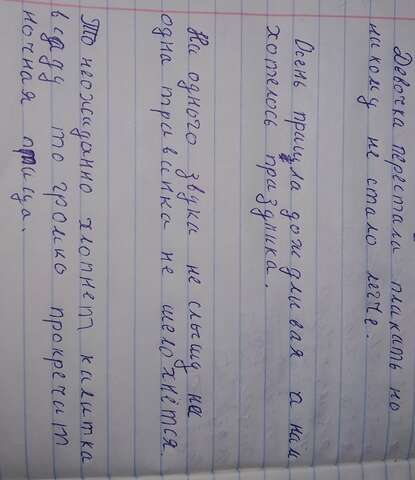 Девочка перестала плакать но
никому не стало легче.
Осень пришла дождливая а нам
хотелось праздника.
Ни одного звука не слышу не
одна травинка не шелохнётся.
То неожиданно хлопнет калитка
в саду то громко прокречит
ночная птица.